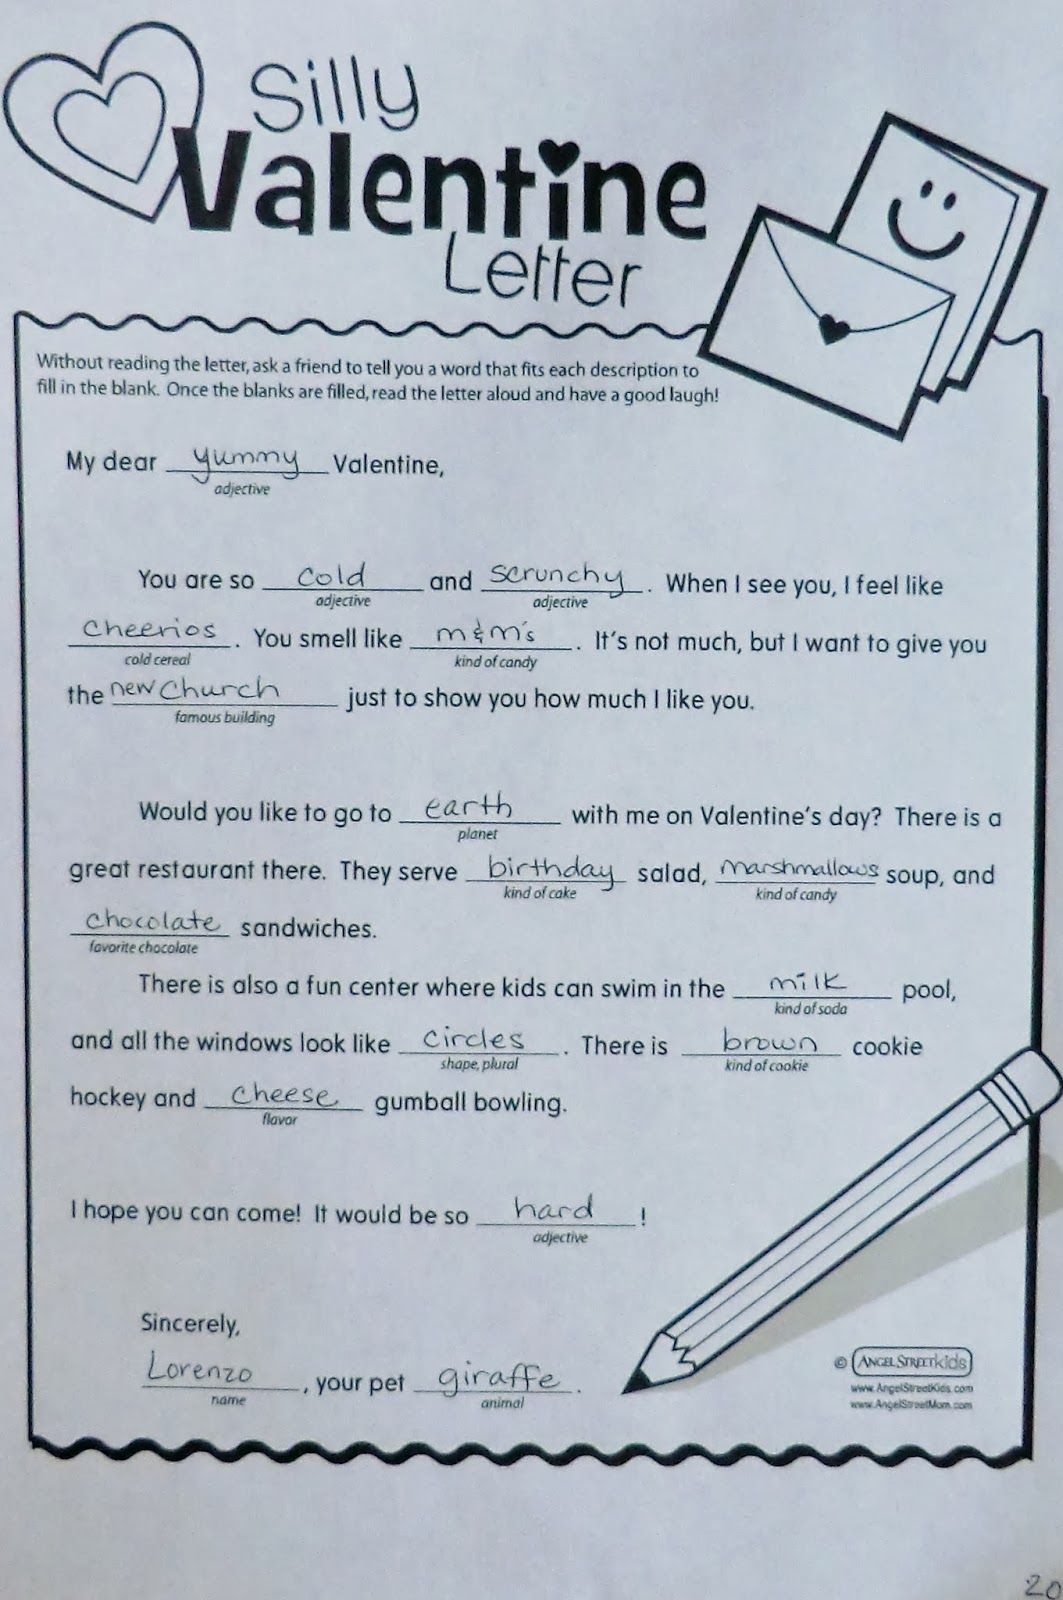 Silly
Valentine
Letter
Without reading the letter, ask a friend to tell you a word that fits each description to
fill in the blank. Once the blanks are filled, read the letter aloud and have a good laugh!
My dear yummy Valentine,
adjective
You are so cold and scrunchy. When I see you, I feel like
adjective adjective
cheerios. You smell like m&m's. It's not much, but I want to give you
cold cereal kind of candy
the new church just to show you how much I like you.
famous building
Would you like to go to earth with me on Valentine's day? There is a
planet
great restaurant there. They serve birthday salad, marshmallows soup, and
kind of cake kind of candy
chocolate sandwiches.
favorite chocolate
There is also a fun center where kids can swim in the milk pool,
kind of soda
and all the windows look like circles. There is brown cookie
shape, plural kind of cookie
hockey and cheese gumball bowling.
flavor
I hope you can come! It would be so hard!
adjective
Sincerely,
Lorenzo, your pet giraffe.
name animal
© ANGEL STREETkids
www.AngelStreetKids.com
www.AngelStreetMom.com
20